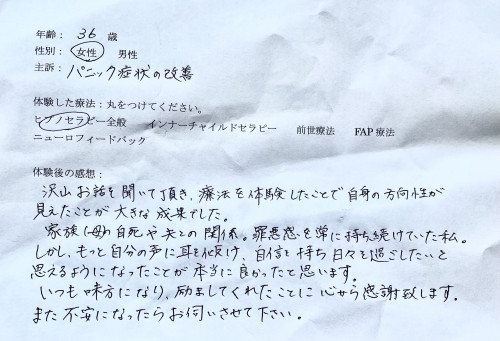 年齢： 36 歳
性別： 女性 男性
主訴： パニック症状の改善
体験した療法：丸をつけてください。
ヒプノセラピー全般 インナーチャイルドセラピー 前世療法 FAP 療法
ニューロフィードバック
体験後の感想：
沢山お話を聞いて頂き、療法を体験したことで自身の方向性が
見えたことが大きな成果でした。
家族(母)自死や夫との関係。罪悪感を常に持ち続けていた私。
しかし、もっと自分の声に耳を傾け、自信を持ち日々を過ごしたいと
思えるようになったことが本当に良かったと思います。
いつも味方になり、励ましてくれたことに心から感謝致します。
また不安になったらお伺いさせて下さい。